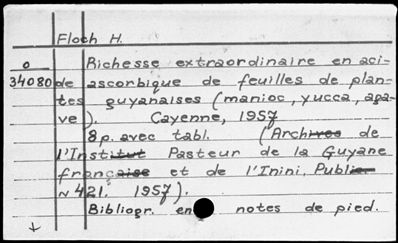 Floch H.
o Richesse extraordinaire en aci-
34080 de ascorbique de feuilles de plan-
tes guyanaises (manioc, yucca, aga-
ve). Cayenne, 1957
8p. avec tabl. (Archives de
l'Institut Pasteur de la Guyane
française et de l'Inini. Publi.
N 421. 1957).
Bibliogr. en notes de pied.